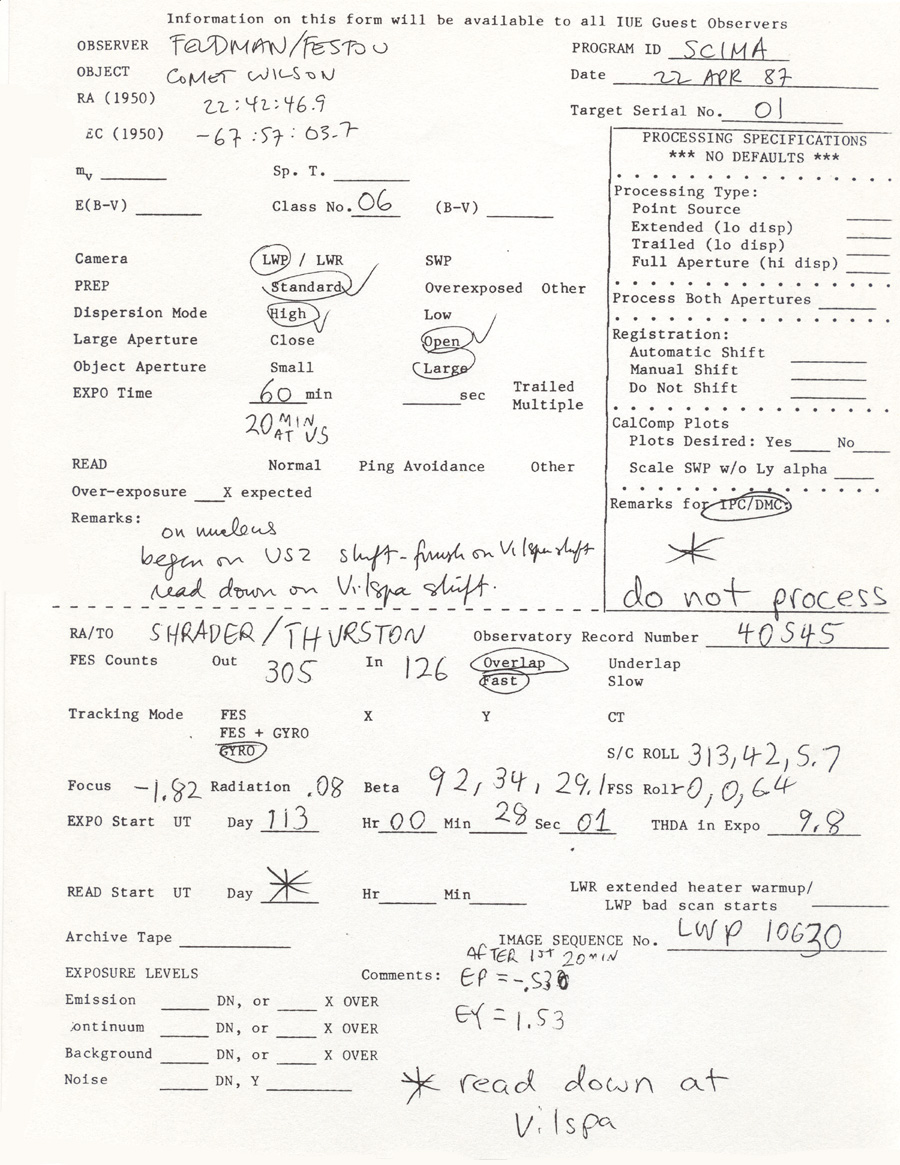 Information on this form will be available to all IUE Guest Observers
OBSERVER FELDMAN/FESTOU PROGRAM ID SCIMA
OBJECT COMET WILSON Date 22 APR 87
RA (1950) 22:42:46.9 Target Serial No. 01
EC (1950) -67:57:03.7
PROCESSING SPECIFICATIONS
*** NO DEFAULTS ***
mv ____ Sp. T. ____
E(B-V) ____ Class No. 06 (B-V) ____
Processing Type:
Point Source ____
Extended (lo disp) ____
Trailed (lo disp) ____
Full Aperture (hi disp) ____
Camera LWP / LWR SWP
PREP Standard ✓ Overexposed Other
Process Both Apertures ____
Dispersion Mode High ✓ Low
Large Aperture Close Open ✓
Object Aperture Small Large
Registration:
Automatic Shift ____
Manual Shift ____
Do Not Shift ____
EXPO Time 60 min ____ sec Trailed
Multiple
20 MIN
AT US
CalComp Plots
Plots Desired: Yes ____ No ____
Scale SWP w/o Ly alpha ____
READ Normal Ping Avoidance Other
Over-exposure ____ X expected
Remarks for IPC/DMC:
*
do not process
Remarks: on nucleus
begin on US2 shift - finish on Vilspa shift
read down on Vilspa shift.
RA/TO SHRADER/THURSTON Observatory Record Number 40545
FES Counts Out 305 In 126 Overlap Underlap
Fast Slow
Tracking Mode FES X Y CT
FES + GYRO
GYRO
S/C ROLL 313,42,5.7
Focus -1.82 Radiation .08 Beta 92, 34, 29.1 FSS Roll -0,0,64
EXPO Start UT Day 113 Hr 00 Min 28 Sec 01 THDA in Expo 9.8
READ Start UT Day * Hr ____ Min ____ LWR extended heater warmup/
LWP bad scan starts ____
Archive Tape ____ IMAGE SEQUENCE No. LWP 10630
AFTER 1ST 20 MIN
EXPOSURE LEVELS Comments: EP = -.530
EY = 1.53
Emission ____ DN, or ____ X OVER
ontinuum ____ DN, or ____ X OVER
Background ____ DN, or ____ X OVER
Noise ____ DN, Y ____
* read down at
Vilspa